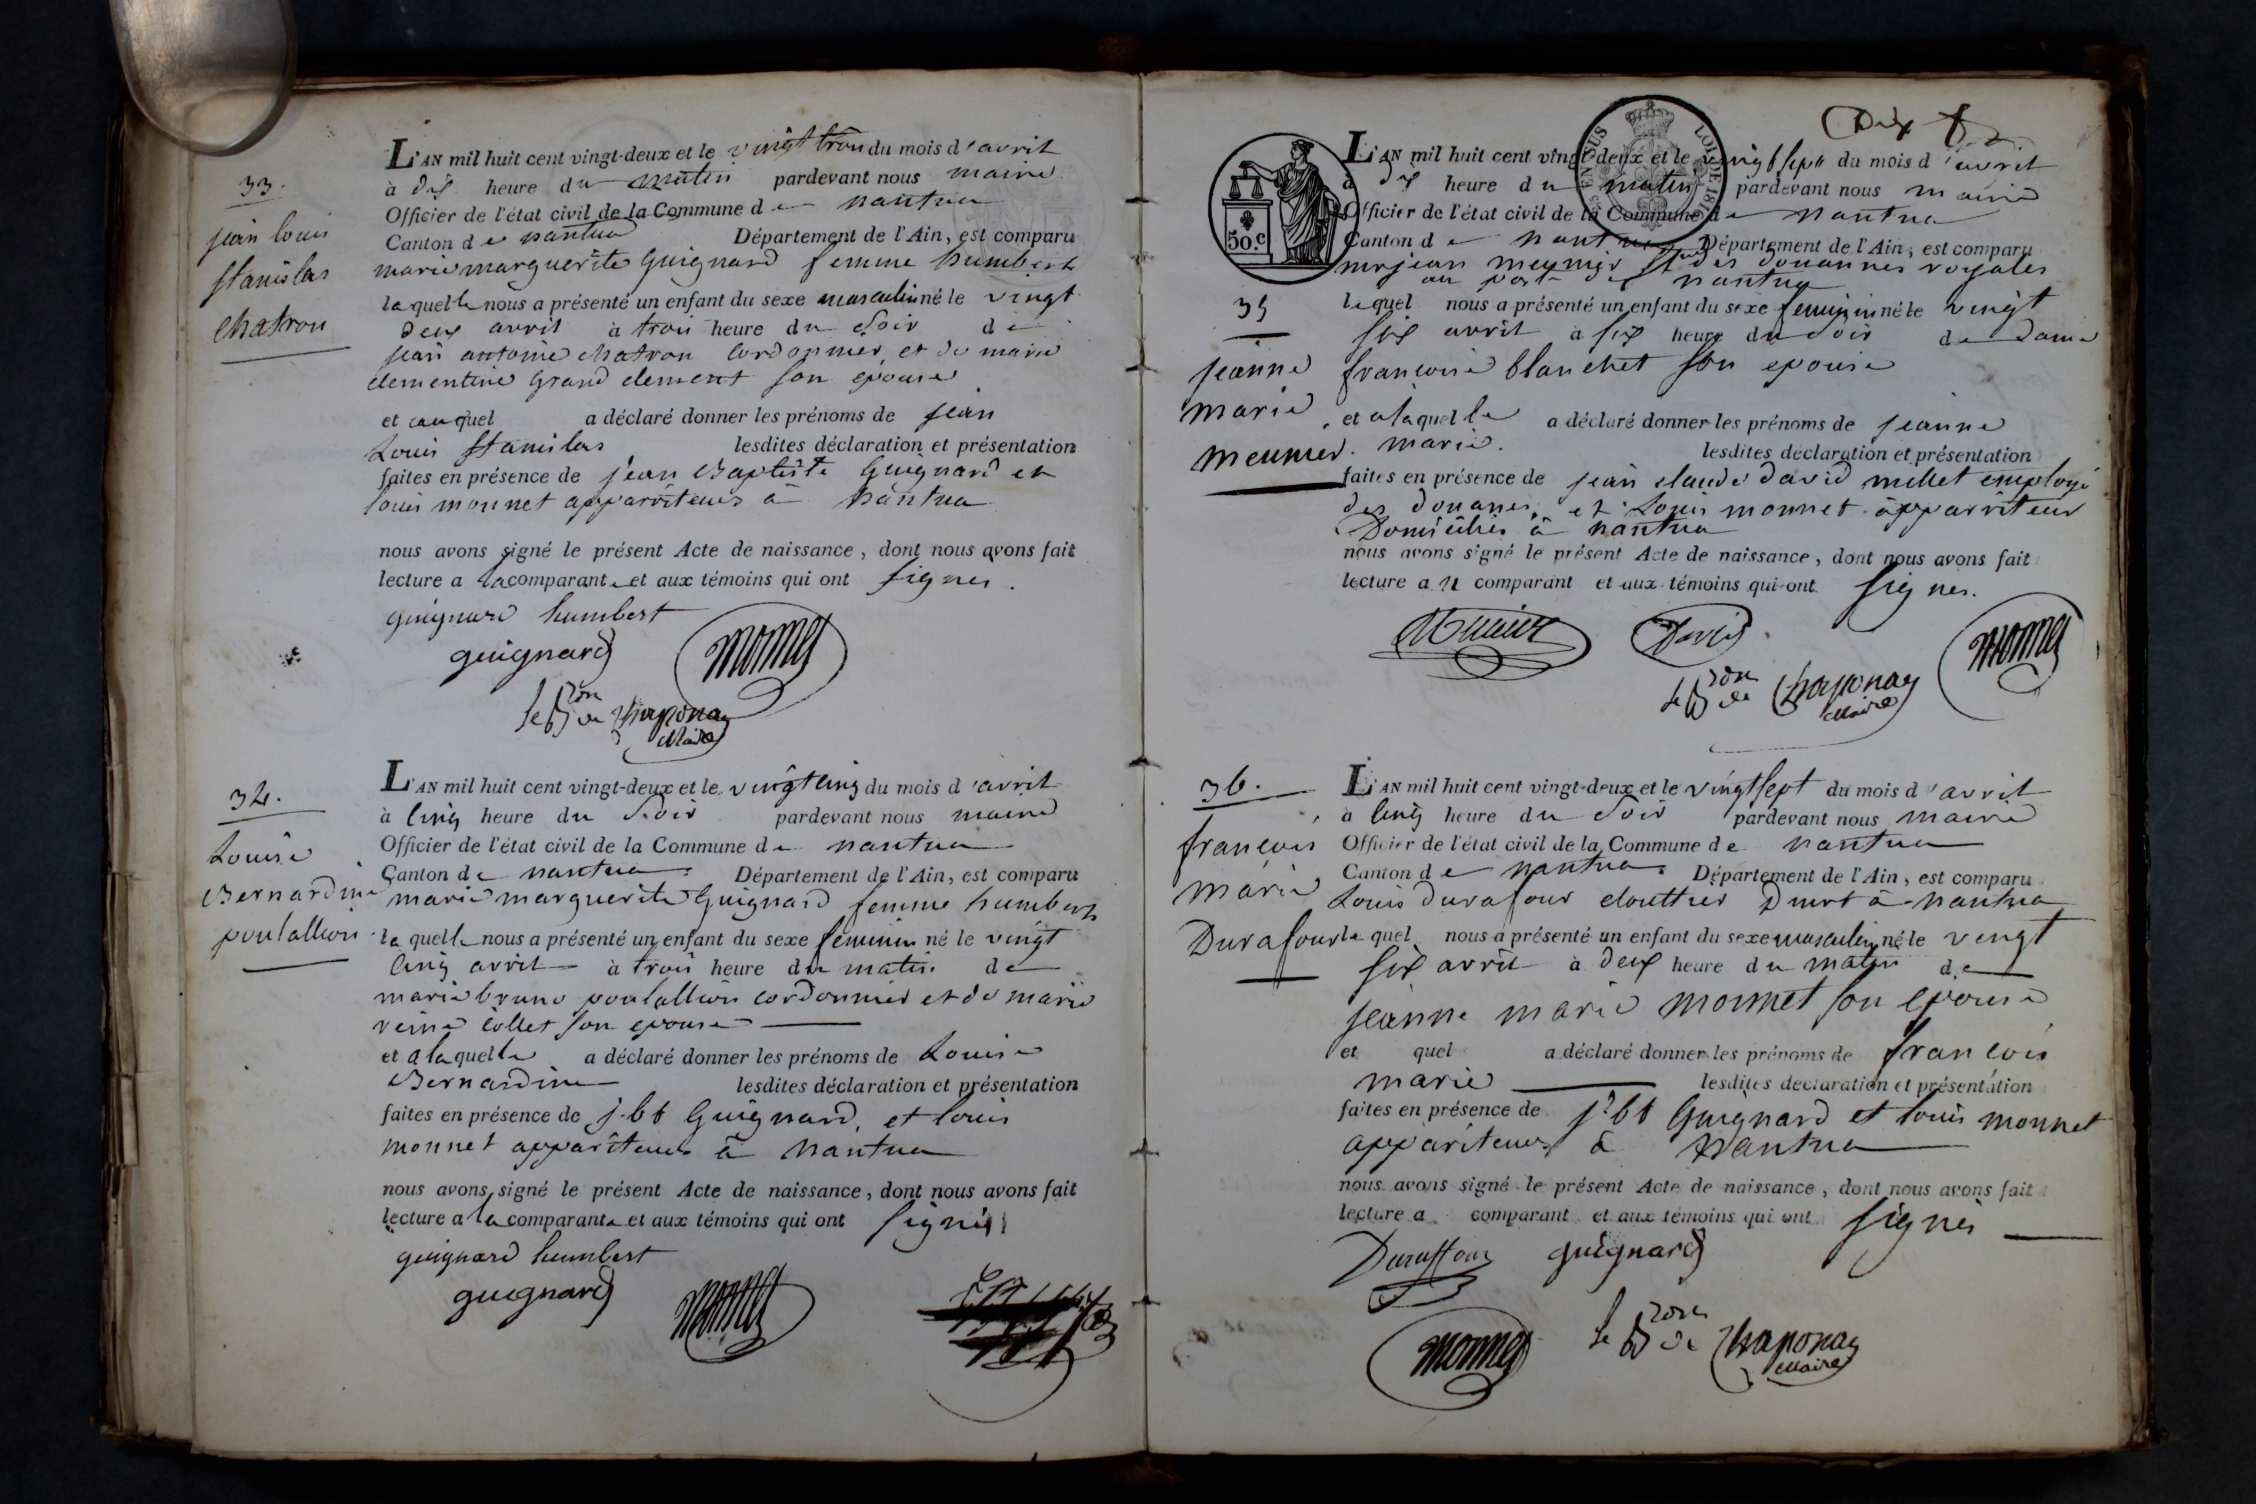 33.
jean louis
stanislas
chatron
L'AN mil huit cent vingt-deux et le vingt trois du mois d'avril
à dix heure du matin pardevant nous maire
Officier de l'état civil de la Commune de nantua
Canton de nantua Département de l'Ain, est comparu
marie marguerite Guignard femme humbert
laquelle nous a présenté un enfant du sexe masculin né le vingt
deux avril à trois heure du soir de
jean antoine chatron cordonnier et de marie
clementine Grand clement son epouse
et auquel a déclaré donner les prénoms de jean
Louis stanislas lesdites déclaration et présentation
faites en présence de jean Baptiste Guignard et
louis monnet appariteurs à nantua
nous avons signé le présent Acte de naissance, dont nous avons fait
lecture a la comparante et aux témoins qui ont signés.
guignard humbert
guignard monnet
le Bon de Chaponay
Maire
34.
Louise
Bernardine
poulallion
L'AN mil huit cent vingt-deux et le vingt cinq du mois d'avril
à cinq heure du soir pardevant nous maire
Officier de l'état civil de la Commune de nantua
Canton de nantua Département de l'Ain, est comparu
marie marguerite Guignard femme humbert
laquelle nous a présenté un enfant du sexe feminin né le vingt
cinq avril à trois heure du matin de
marie bruno poulallion cordonnier et de marie
reine collet son epouse
et a laquelle a déclaré donner les prénoms de Louise
Bernardine lesdites déclaration et présentation
faites en présence de j. bt Guignard, et louis
monnet appariteurs à nantua
nous avons signé le présent Acte de naissance, dont nous avons fait
lecture a la comparante et aux témoins qui ont signés
guignard humbert
guignard monnet
50.c
EN SUS
LOI DE 181
35
jeanne
marie
meunier.
L'AN mil huit cent vingt-deux et le vingt sept du mois d'avril
à dix heure du matin pardevant nous maire
Officier de l'état civil de la Commune de nantua
Canton de nantua Département de l'Ain, est comparu
mr jean meunier des Douannes royales
au poste de nantua
lequel nous a présenté un enfant du sexe feminin né le vingt
six avril à six heure du soir de dame
françoise blanchet son epouse
et a laquelle a déclaré donner les prénoms de jeanne
marie. lesdites déclaration et présentation
faites en présence de jean claude david millet employé
des douanes, et Louis monnet appariteur
Domiciliés à nantua
nous avons signé le présent Acte de naissance, dont nous avons fait
lecture a u comparant et aux témoins qui ont signés.
Meunier David monnet
le Bon de Chaponay
Maire
36.
françois
marie
Durafour
L'AN mil huit cent vingt-deux et le vingt sept du mois d'avril
à cinq heure du soir pardevant nous maire
Officier de l'état civil de la Commune de nantua
Canton de nantua Département de l'Ain, est comparu
Louis durafour clouttier Dmrt à nantua
lequel nous a présenté un enfant du sexe masculin né le vingt
six avril à deux heure du matin de
jeanne marie monnet son epouse
et quel a déclaré donner les prénoms de françois
marie lesdites déclaration et présentation
faites en présence de jn bt Guignard et louis monnet
appariteurs à nantua
nous avons signé le présent Acte de naissance, dont nous avons fait
lecture a comparant et aux témoins qui ont signés
Duraffour guignard
monnet le Bon de Chaponay
Maire